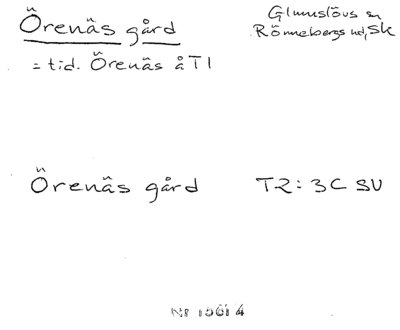 Örenäs gård
Glumslövs sn
Rönnebergs hd, Sk
= tid. Örenäs å T1
Örenäs gård T2: 3C SV